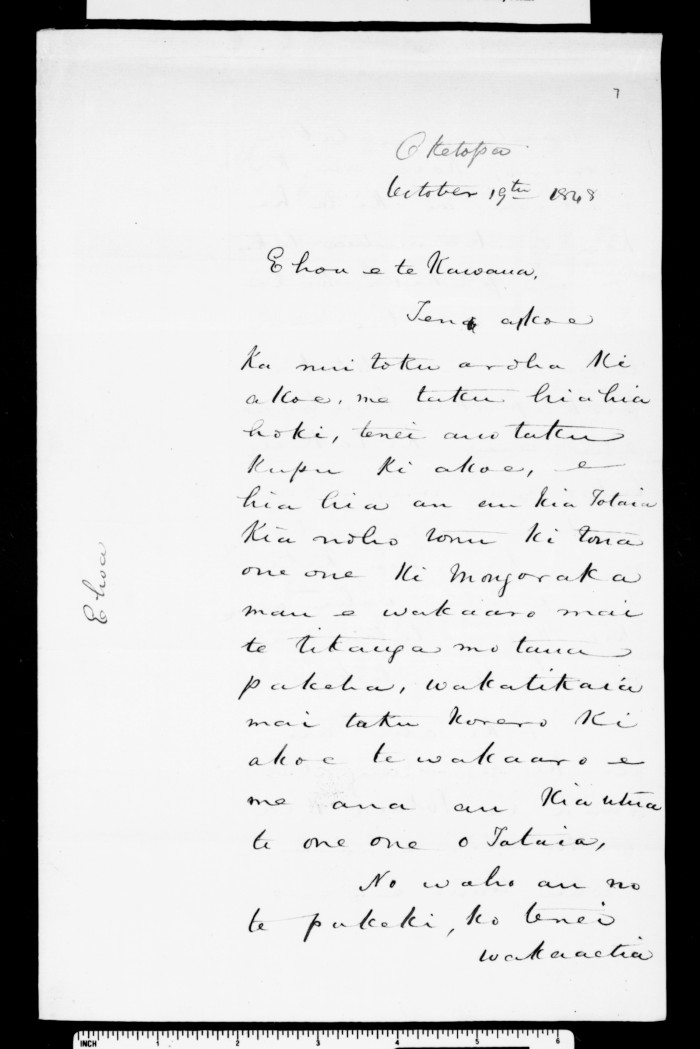 7
Oketopa
October 19th 1848
E hoa e te Kawana,
Tena akoe
Ka nui toku aroha Ki
akoe, me taku hiahia
hoki, tenei ano taku
Kupu Ki akoe, e
hia hia an au Kia Totaia
Kia noho tonu ki tona
one one Ki Mongoraka
mau e wakaaro mai
te tikanga mo taua
pakeha, wakatikaia
mai taku Korero Ki
akoe te wakaaro e
me ana au Kia utua
te one one o Tataia,
No waho au no
te pukeki, ko tenei
wakaaetia
E hoa
INCH 1 2 3 4 5 6